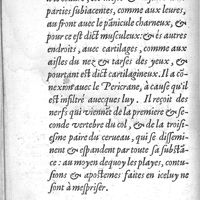 parties subiacentes, comme aux leures,
au front auec le pãnicule charneux, &
pour ce est dict musculeux: & és autres
endroits, auec cartilages, comme aux
aisles du nez & tarses des yeux, &
pourtant est dict cartilagineux. Il a cõ-
nexion auec le Pericrane, à cause qu'il
est insiltré auecques luy. Il reçoit des
nerfs qui viennẽt de la premiere & se-
conde vertebre du col, & de la troisi-
esme paire du cerueau, qui se dissemi-
nent & espandent par toute sa substã-
ce: au moyen dequoy les playes, contu-
sions & apostemes faites en iceluy ne
sont à mespriser.